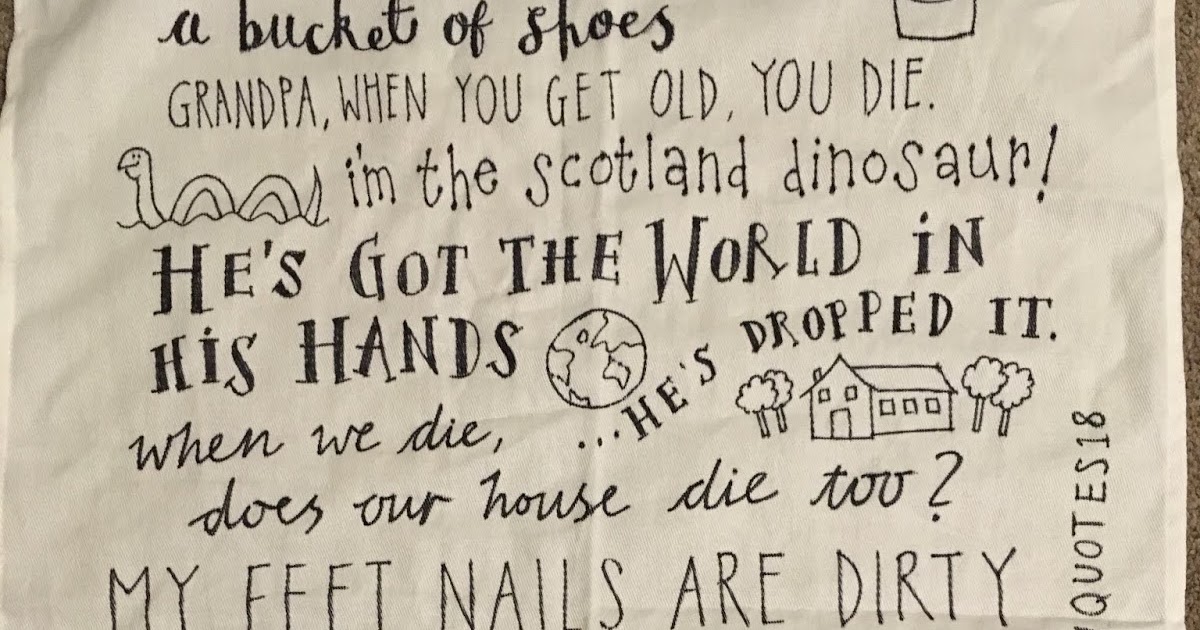 a bucket of shoes
GRANDPA, WHEN YOU GET OLD, YOU DIE.
i'm the scotland dinosaur!
HE'S GOT THE WORLD iN
HiS HANDS
...HE'S DROPPED IT.
when we die,
does our house die too?
MY FEET NAILS ARE DIRTY
QUOTES18